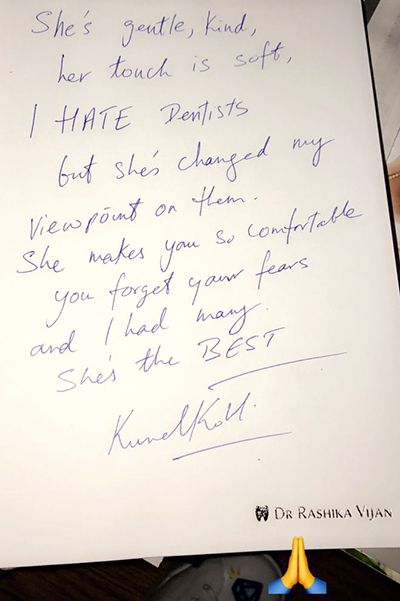 She's gentle, kind,
her touch is soft,
I HATE Dentists
but she's changed my
viewpoint on them.
She makes you so comfortable
you forget your fears
and I had many.
She's the BEST
DR RASHIKA VIJAN